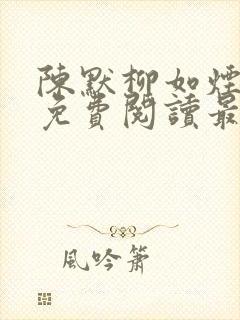 陳默柳如煙
免費閱讀最
風吟簫